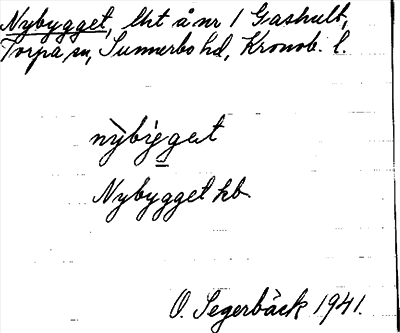 Nybygget, lht å nr 1 Gashult,
Torpa sn, Sunnerbo hd, Kronob. l.
nỳbýg̲et
Nybygget kb
O. Segerbäck 1941.